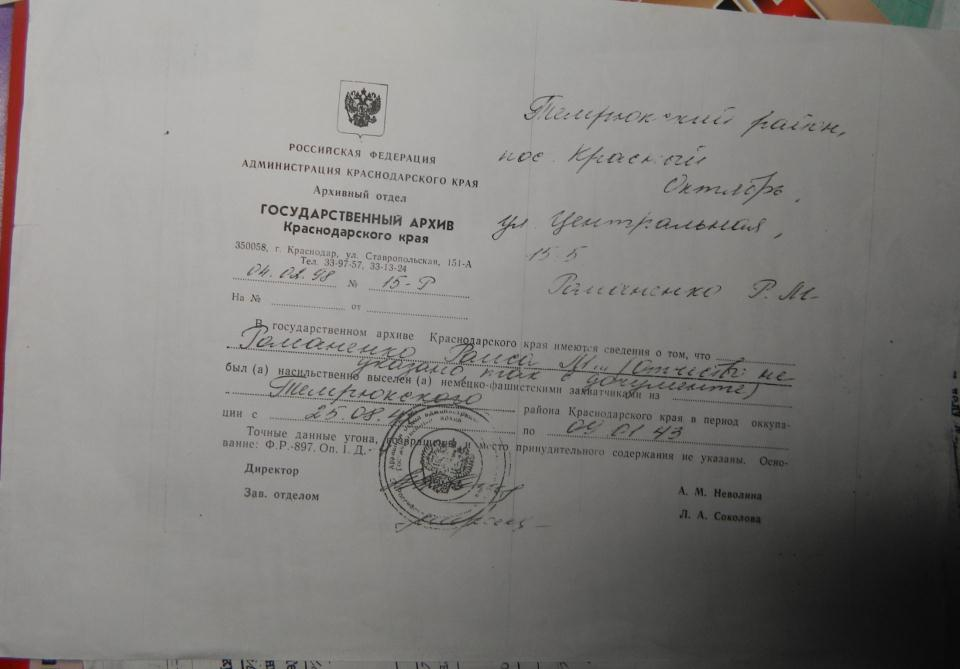 РОССИЙСКАЯ ФЕДЕРАЦИЯ
АДМИНИСТРАЦИЯ КРАСНОДАРСКОГО КРАЯ
Архивный отдел
ГОСУДАРСТВЕННЫЙ АРХИВ
Краснодарского края
350058, г. Краснодар, ул. Ставропольская, 151-А
Тел. 33-97-57, 33-13-24
04.02.98 № 15-Р
На № от
Темрюкский район,
пос. Красный
Октябрь,
ул. Центральная,
15-5
Романенко Р. М.
В государственном архиве Краснодарского края имеются сведения о том, что
Романенко Раиса М... (Отчество не
указано так в документе)
был (а) насильственно выселен (а) немецко-фашистскими захватчиками из
Темрюкского района Краснодарского края в период оккупа-
ции с 25.08.42 по 09 01 43
Точные данные угона, возвращения и место принудительного содержания не указаны. Осно-
вание: Ф.Р.-897. Оп. I. Д.-
Директор А. М. Неволина
Зав. отделом Л. А. Соколова